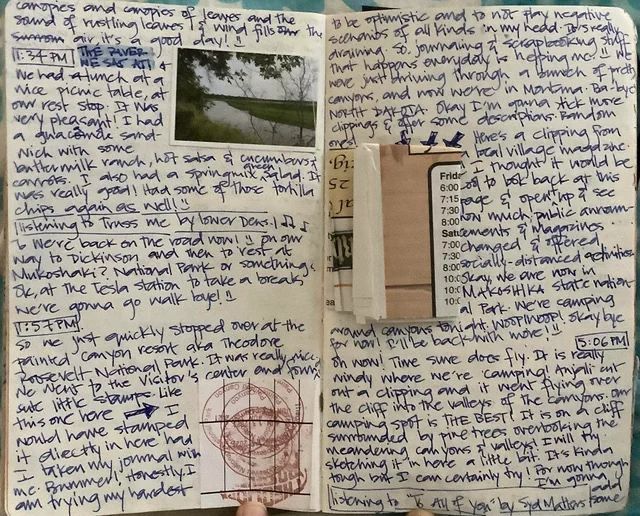 canopies and canopies of leaves and the
sound of rustling leaves & wind fills our the
air, it's a good day! !!
1:34 PM
THE RIVER
WE SAT AT!
We had lunch at a
nice picnic table, at
our rest stop. It was
very pleasant! I had
a guacamole sand-
wich with some
buttermilk ranch, hot salsa & cucumbers &
carrots. I also had a spring mix salad. It
was really good! Had some of those tortilla
chips again as well! !!
listening to Tiross me by lower Dens!
We're back on the road now! !! on our
way to Dickinson and then to rest at
Makoshaki?, National Park or something.
Ok, at the Tesla station to take a break
we're gonna go walk bye! !!
1:57 PM
So we just quickly stopped over at the
painted canyon resort aka Theodore
Roosevelt National Park. It was really nice,
We went to the Visitor's center and found
cute little stamps. Like
this one here → I
would have stamped
it directly in here had
I taken my journal with
me. Bummer! Honestly, I
am trying my hardest
to be optimistic and to not play negative
scenarios of all kinds in my head. It's really
draining. So, journaling & scrapbooking stuff
that happens everyday is helping me! !! We
were just driving through a bunch of pretty
canyons, and now we're in Montana. Ba-bye
NORTH DAKOTA. Okay I'm gonna stick more
clippings & offer some descriptions. Random
ones!
Here's a clipping from
local village magazine.
I thought it would be
cool to look back at this
page & open it up & see
how much public announ-
cements & Magazines
changed & offered
socially-distanced activities.
Okay, we are now in
MAKOSHIKA state nation-
al Park. We're camping
around canyons tonight. Woop! Woop! Okay bye
for now! I'll be back with more! !!
5:06 PM
Friday
6:00
7:15
7:30
8:00
7:00
7:30
8:00
oh now! Time sure does fly. It is really
windy where we're camping! Anjali cut
out a clipping and it went flying over
the cliff into the valleys of the canyons. Our
camping spot is THE BEST! It is on a cliff
surrounded by pine trees overlooking the
meandering canyons & valleys! I will try
sketching it in here a little bit. It's kinda
tough but I can certainly try! For now though
I'm gonna add
listening to "To All of You" by Syd Matters some